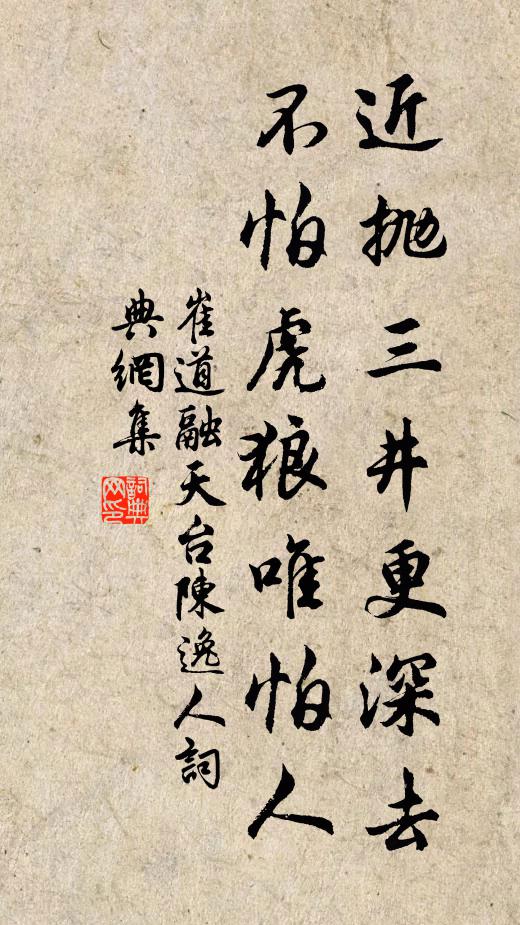 近拋三井更深去
不怕虎狼唯怕人
崔道融天台陳逸人詞
典網集
詞典
网印